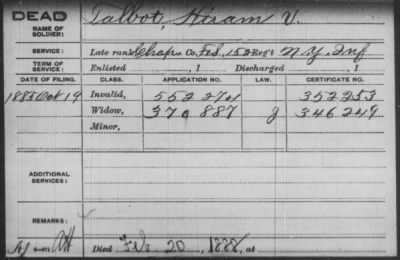 DEAD
NAME OF SOLDIER: Talbot, Hiram V.
SERVICE: Late rank Chap Co. F&S, 152 Reg't N.Y. Inf
TERM OF SERVICE: Enlisted , 1 Discharged , 1
DATE OF FILING. CLASS. APPLICATION NO. LAW. CERTIFICATE NO.
1885 Oct 19 Invalid, 552 274 352253
Widow, 370 887 J 346249
Minor,
ADDITIONAL SERVICES:
REMARKS:
Died Feb 20, 1888, at